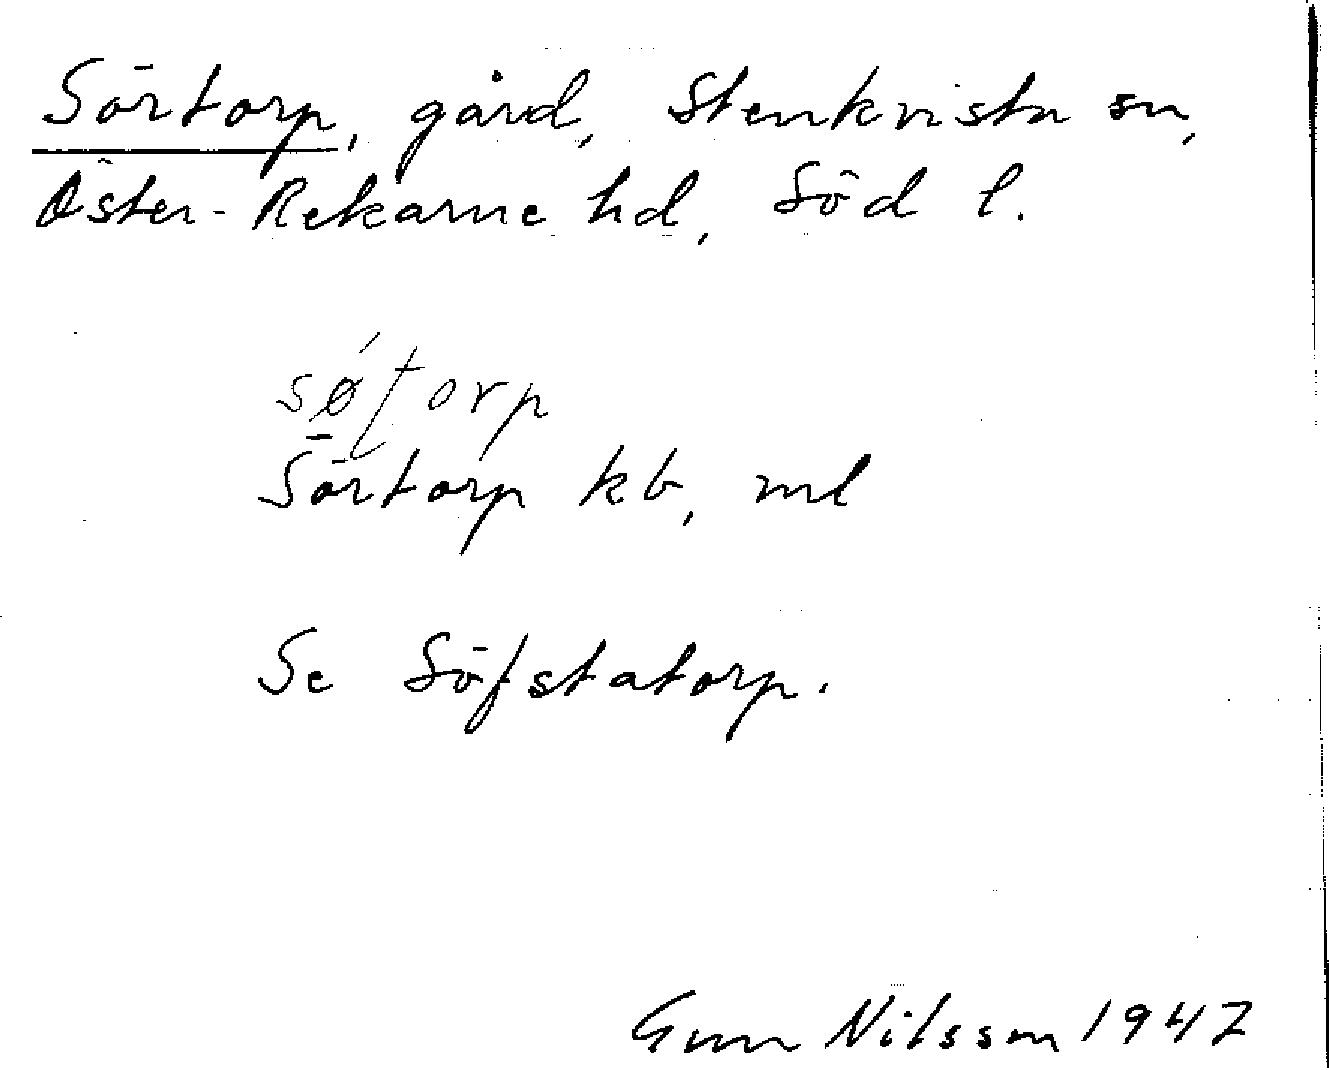 Sörtorp, gård, Stenkvista sn,
Öster-Rekarne hd, Söd l.
søʈorp
Sörtorp kb, ml
Se Söfstatorp.
Gun Nilsson 1947